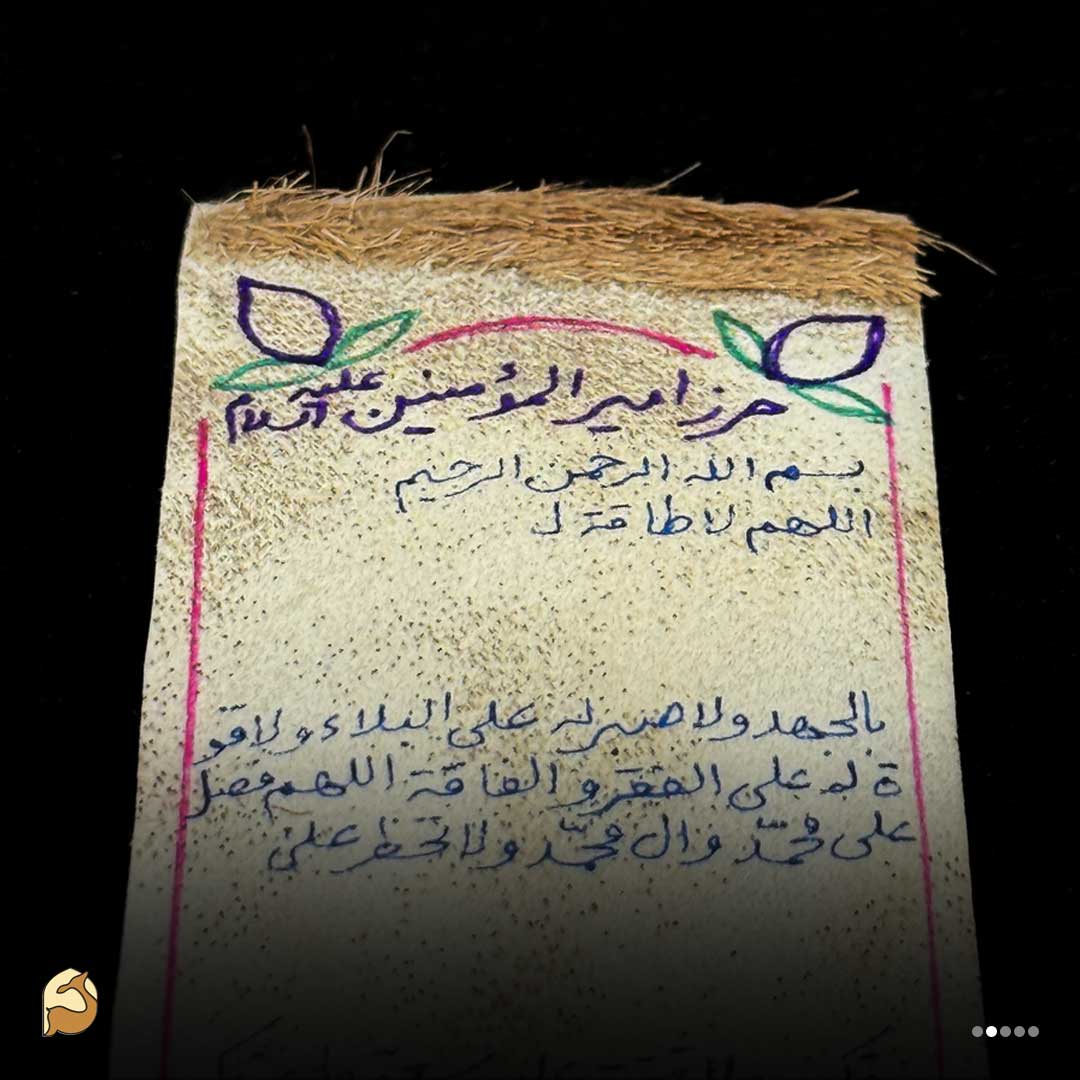 حرز امیر المؤمنین علیه السلام
بسم الله الرحمن الرحیم
اللهم لا طاقة ل
بالجهد ولا صبر له على البلاء ولا قو
ة له على الفقر و الفاقة اللهم فصل
على محمّد وال محمّد ولا تحظر على